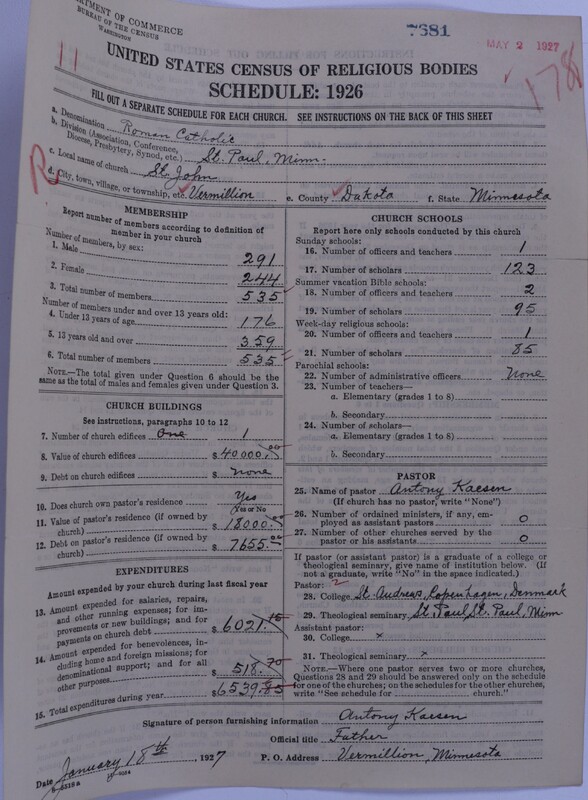 DEPARTMENT OF COMMERCE
BUREAU OF THE CENSUS
WASHINGTON
7681
MAY 2 1927
11
178
UNITED STATES CENSUS OF RELIGIOUS BODIES
SCHEDULE: 1926
FILL OUT A SEPARATE SCHEDULE FOR EACH CHURCH. SEE INSTRUCTIONS ON THE BACK OF THIS SHEET
a. Denomination Roman Catholic
b. Division (Association, Conference, Diocese, Presbytery, Synod, etc.) St. Paul, Minn.
c. Local name of church St. John
R
d. City, town, village, or township, etc. Vermillion e. County Dakota f. State Minnesota
MEMBERSHIP
Report number of members according to definition of member in your church
Number of members, by sex:
1. Male 291
2. Female 244
3. Total number of members 535
Number of members under and over 13 years old:
4. Under 13 years of age 176
5. 13 years old and over 359
6. Total number of members 535
NOTE.—The total given under Question 6 should be the same as the total of males and females given under Question 3.
CHURCH BUILDINGS
See instructions, paragraphs 10 to 12
7. Number of church edifices One 1
8. Value of church edifices $ 40000.00
9. Debt on church edifices $ none
10. Does church own pastor's residence Yes
Yes or No
11. Value of pastor's residence (if owned by church) $ 18000.00
12. Debt on pastor's residence (if owned by church) $ 7655.00
EXPENDITURES
Amount expended by your church during last fiscal year
13. Amount expended for salaries, repairs, and other running expenses; for improvements or new buildings; and for payments on church debt $ 6021.15
14. Amount expended for benevolences, including home and foreign missions; for denominational support; and for all other purposes $ 518.70
15. Total expenditures during year $ 6539.85
CHURCH SCHOOLS
Report here only schools conducted by this church
Sunday schools:
16. Number of officers and teachers 1
17. Number of scholars 123
Summer vacation Bible schools:
18. Number of officers and teachers 2
19. Number of scholars 95
Week-day religious schools:
20. Number of officers and teachers 1
21. Number of scholars 85
Parochial schools:
22. Number of administrative officers none
23. Number of teachers—
a. Elementary (grades 1 to 8)
b. Secondary
24. Number of scholars—
a. Elementary (grades 1 to 8)
b. Secondary
PASTOR
25. Name of pastor Antony Kaesen
(If church has no pastor, write "None")
26. Number of ordained ministers, if any, employed as assistant pastors 0
27. Number of other churches served by the pastor or his assistants 0
If pastor (or assistant pastor) is a graduate of a college or theological seminary, give name of institution below. (If not a graduate, write "No" in the space indicated.)
Pastor: 2
28. College St. Andreas, Copenhagen, Denmark
29. Theological seminary St Paul, St. Paul, Minn
Assistant pastor:
30. College x
31. Theological seminary x
NOTE.—Where one pastor serves two or more churches, Questions 28 and 29 should be answered only on the schedule for one of the churches; on the schedules for the other churches, write "See schedule for church."
Signature of person furnishing information Antony Kaesen
Official title Father
Date January 18th, 1927 P. O. Address Vermillion, Minnesota